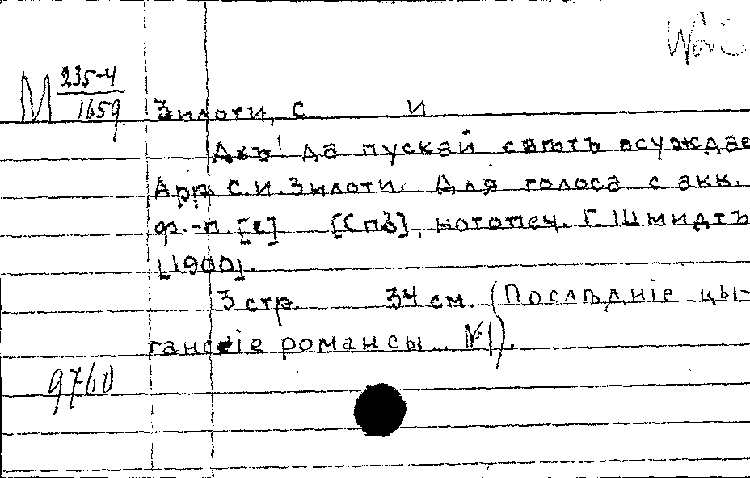 М 235-4
1659
Зилоти, С И
Ахъ! да пускай свѣтъ осуждае
Арр. С.И. Зилоти. Для голоса с акк.
ф.-п. [c] [Спб], нотопеч. Г. Шмидтъ
[1900].
3 стр. 34 см. (Послѣднiе цы-
ганскiе романсы .. №1).
9760